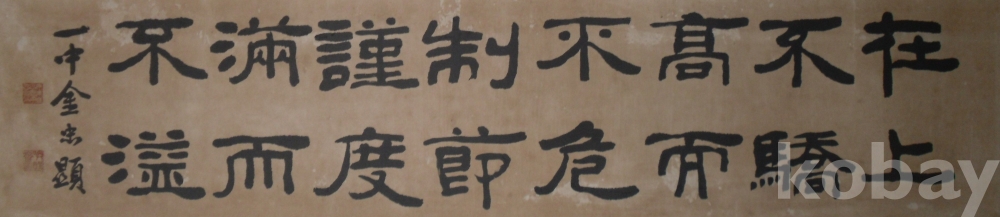 在上
不驕
高而
不危
制節
謹度
滿而
不溢
一中金忠顯
kobay